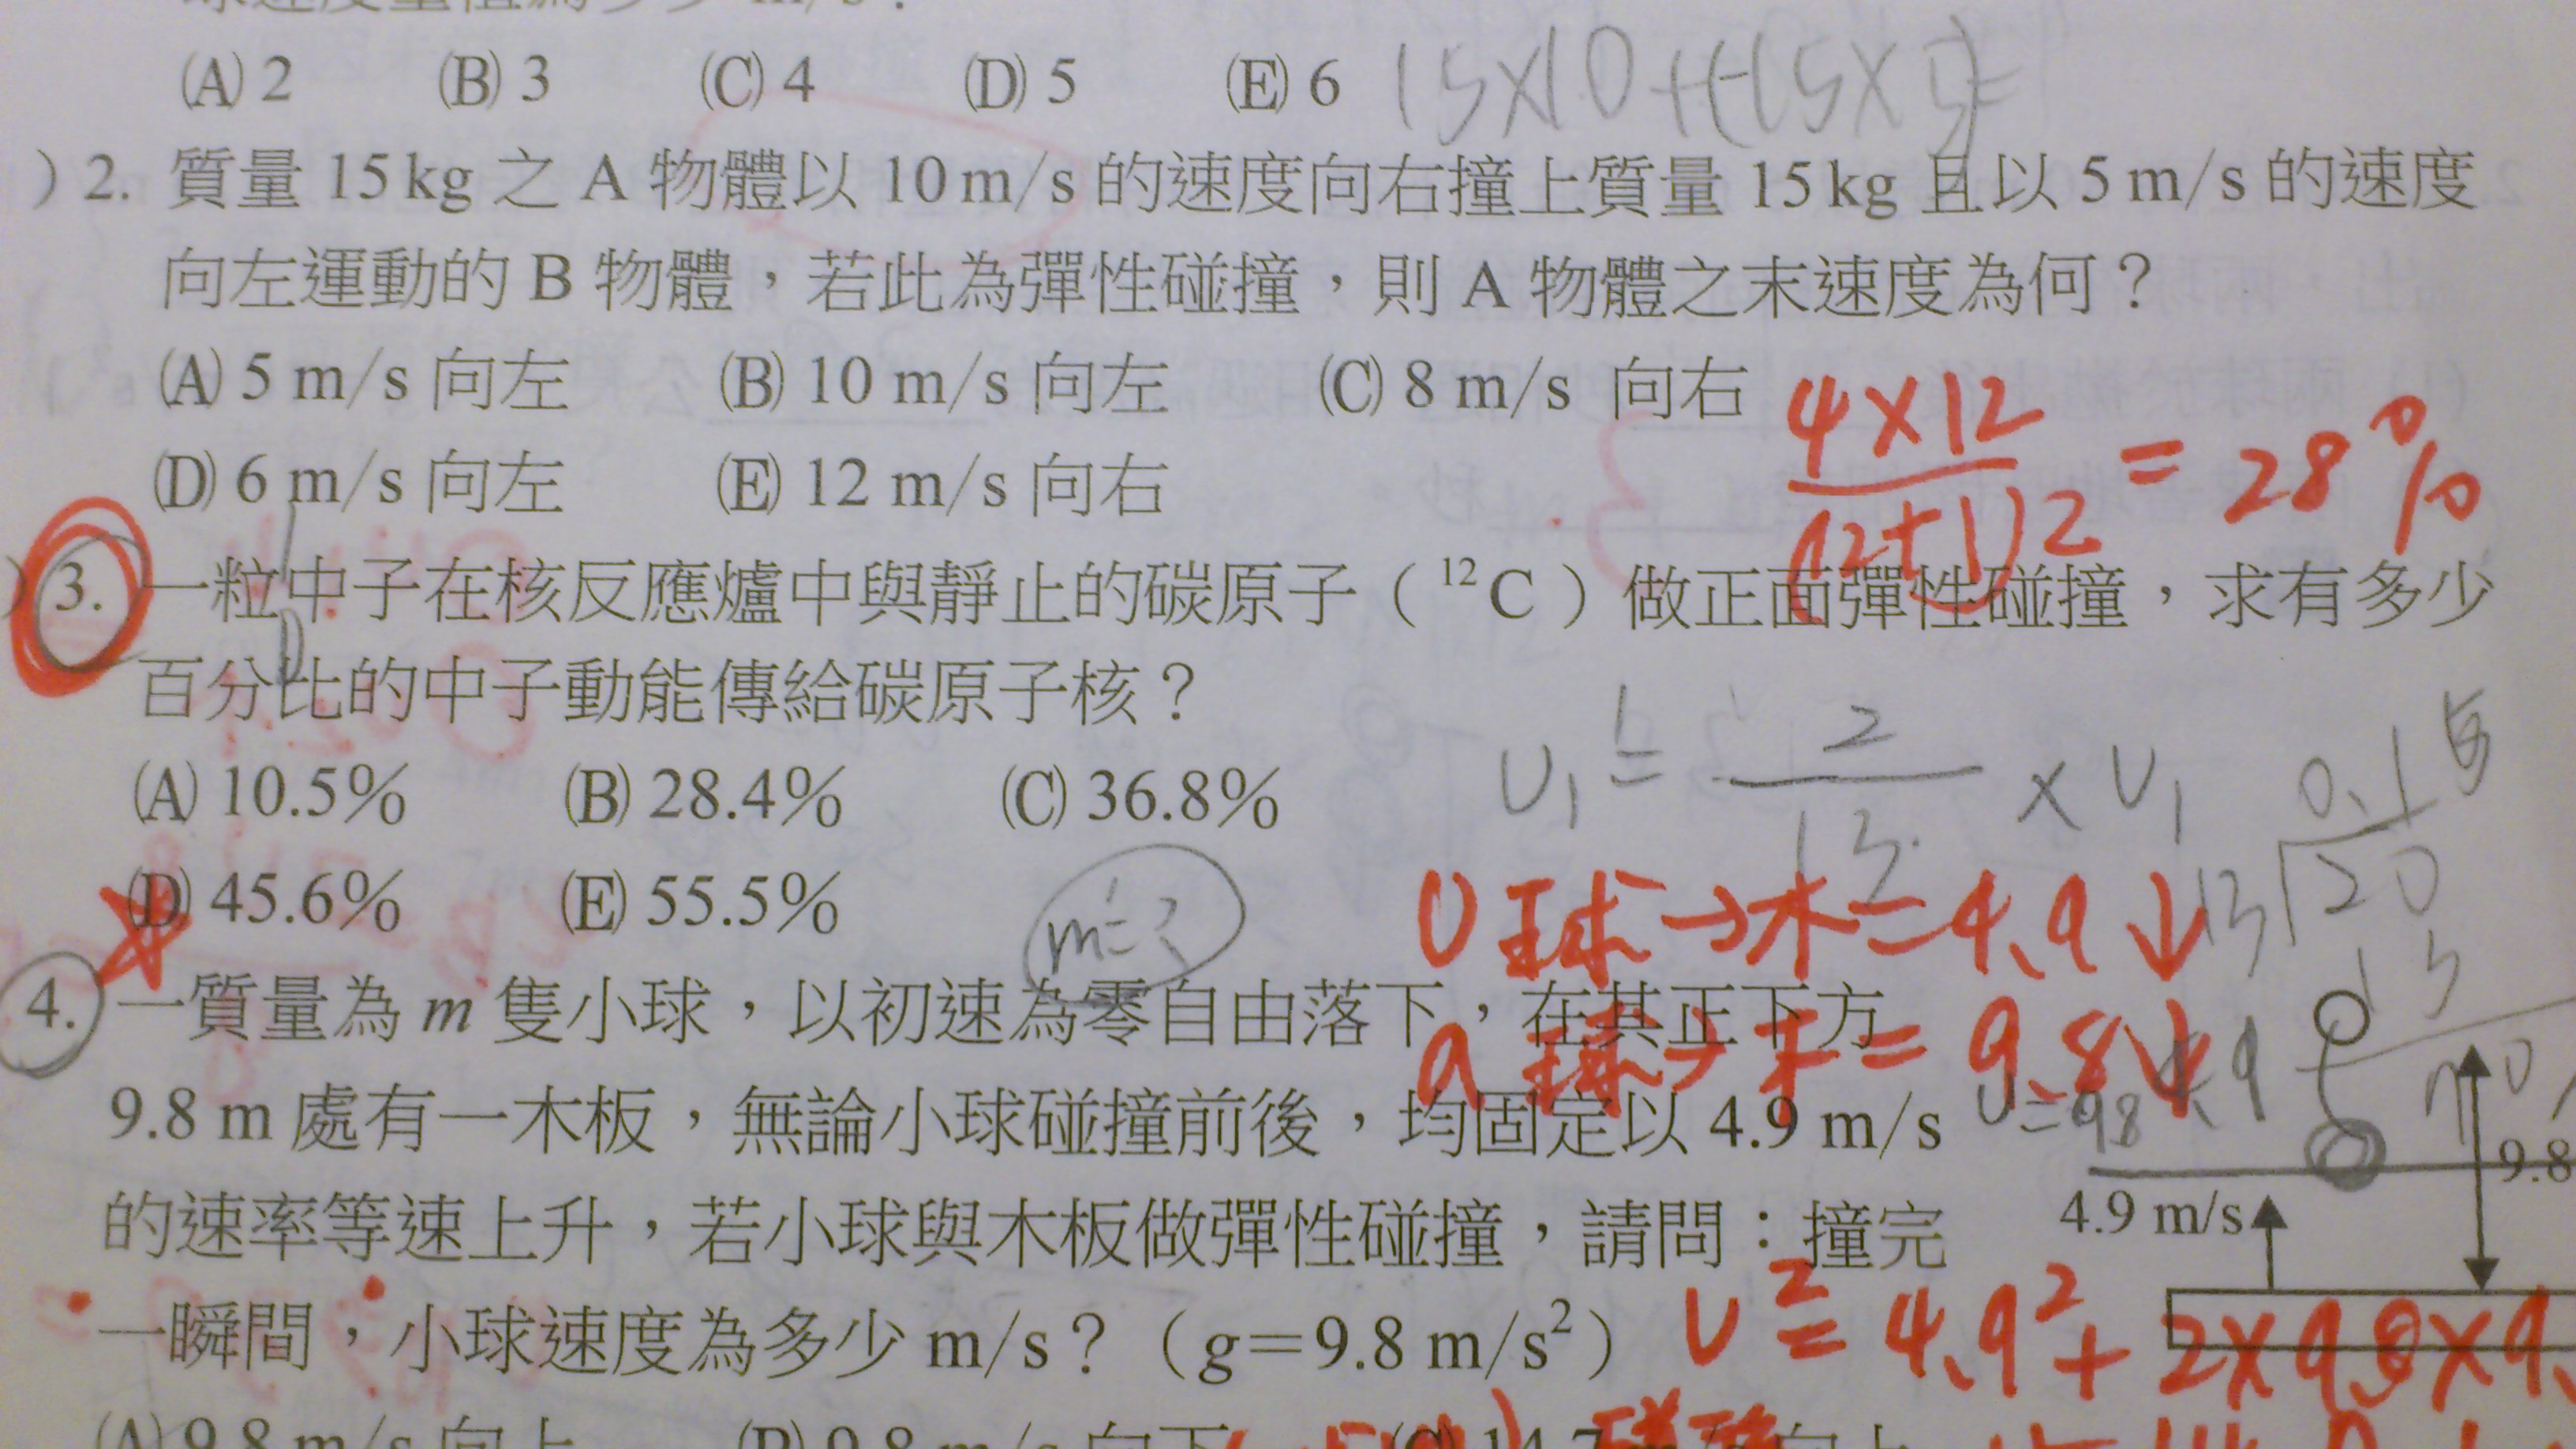 (A) 2 (B) 3 (C) 4 (D) 5 (E) 6 15×10+(-15×5)=
) 2. 質量 15 kg 之 A 物體以 10 m/s 的速度向右撞上質量 15 kg 且以 5 m/s 的速度
向左運動的 B 物體，若此為彈性碰撞，則 A 物體之末速度為何？
(A) 5 m/s 向左 (B) 10 m/s 向左 (C) 8 m/s 向右
(D) 6 m/s 向左 (E) 12 m/s 向右
4×12
(12+1)2 = 28%
) 3. 一粒中子在核反應爐中與靜止的碳原子（12C）做正面彈性碰撞，求有多少
百分比的中子動能傳給碳原子核？
(A) 10.5% (B) 28.4% (C) 36.8%
(D) 45.6% (E) 55.5%
2
U1' = 13 × U1
0.15
13 20
13
m'=?
U球→木=4.9↓
a球→木=9.8↓
4. 一質量為 m 隻小球，以初速為零自由落下，在其正下方
9.8 m 處有一木板，無論小球碰撞前後，均固定以 4.9 m/s
的速率等速上升，若小球與木板做彈性碰撞，請問：撞完
一瞬間，小球速度為多少 m/s？（g=9.8 m/s2）
9.8
4.9 m/s
U2=4.92+2×9.8×9.
(A) 9.8 m/s 向上 (B) 9.8 m/s 向下 (C) 14.7 m/s 向上